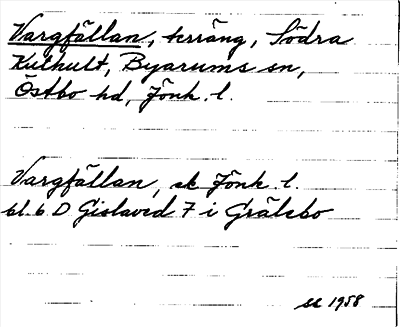 Vargfällan, terräng, Södra
Kulhult, Byarums sn,
Östbo hd, Jönk. l.
Vargfällan, sk Jönk. l.
bl. 6 D Gislaved 7 i Grälebo
1958